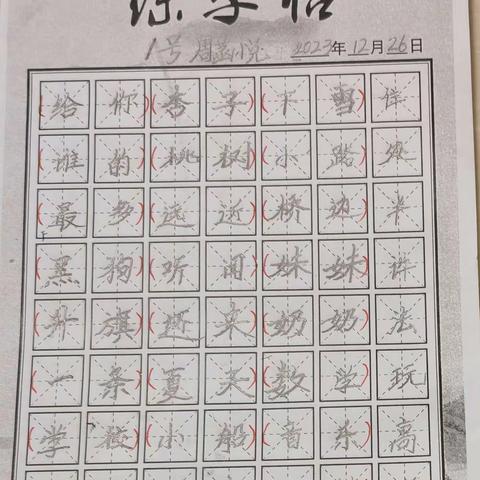 练字帖
1号 周 悦 2023年12月26日
(给你)(杏子)(下雪)详
(谁的)(桃树)(小路)农
(最多)(远近)(桥边)半
(黑狗)(听闻)(妹妹)许
(升旗)(越来)(奶奶)法
(一条)(夏天)(数学)玩
(学校)(小船)(音乐)高